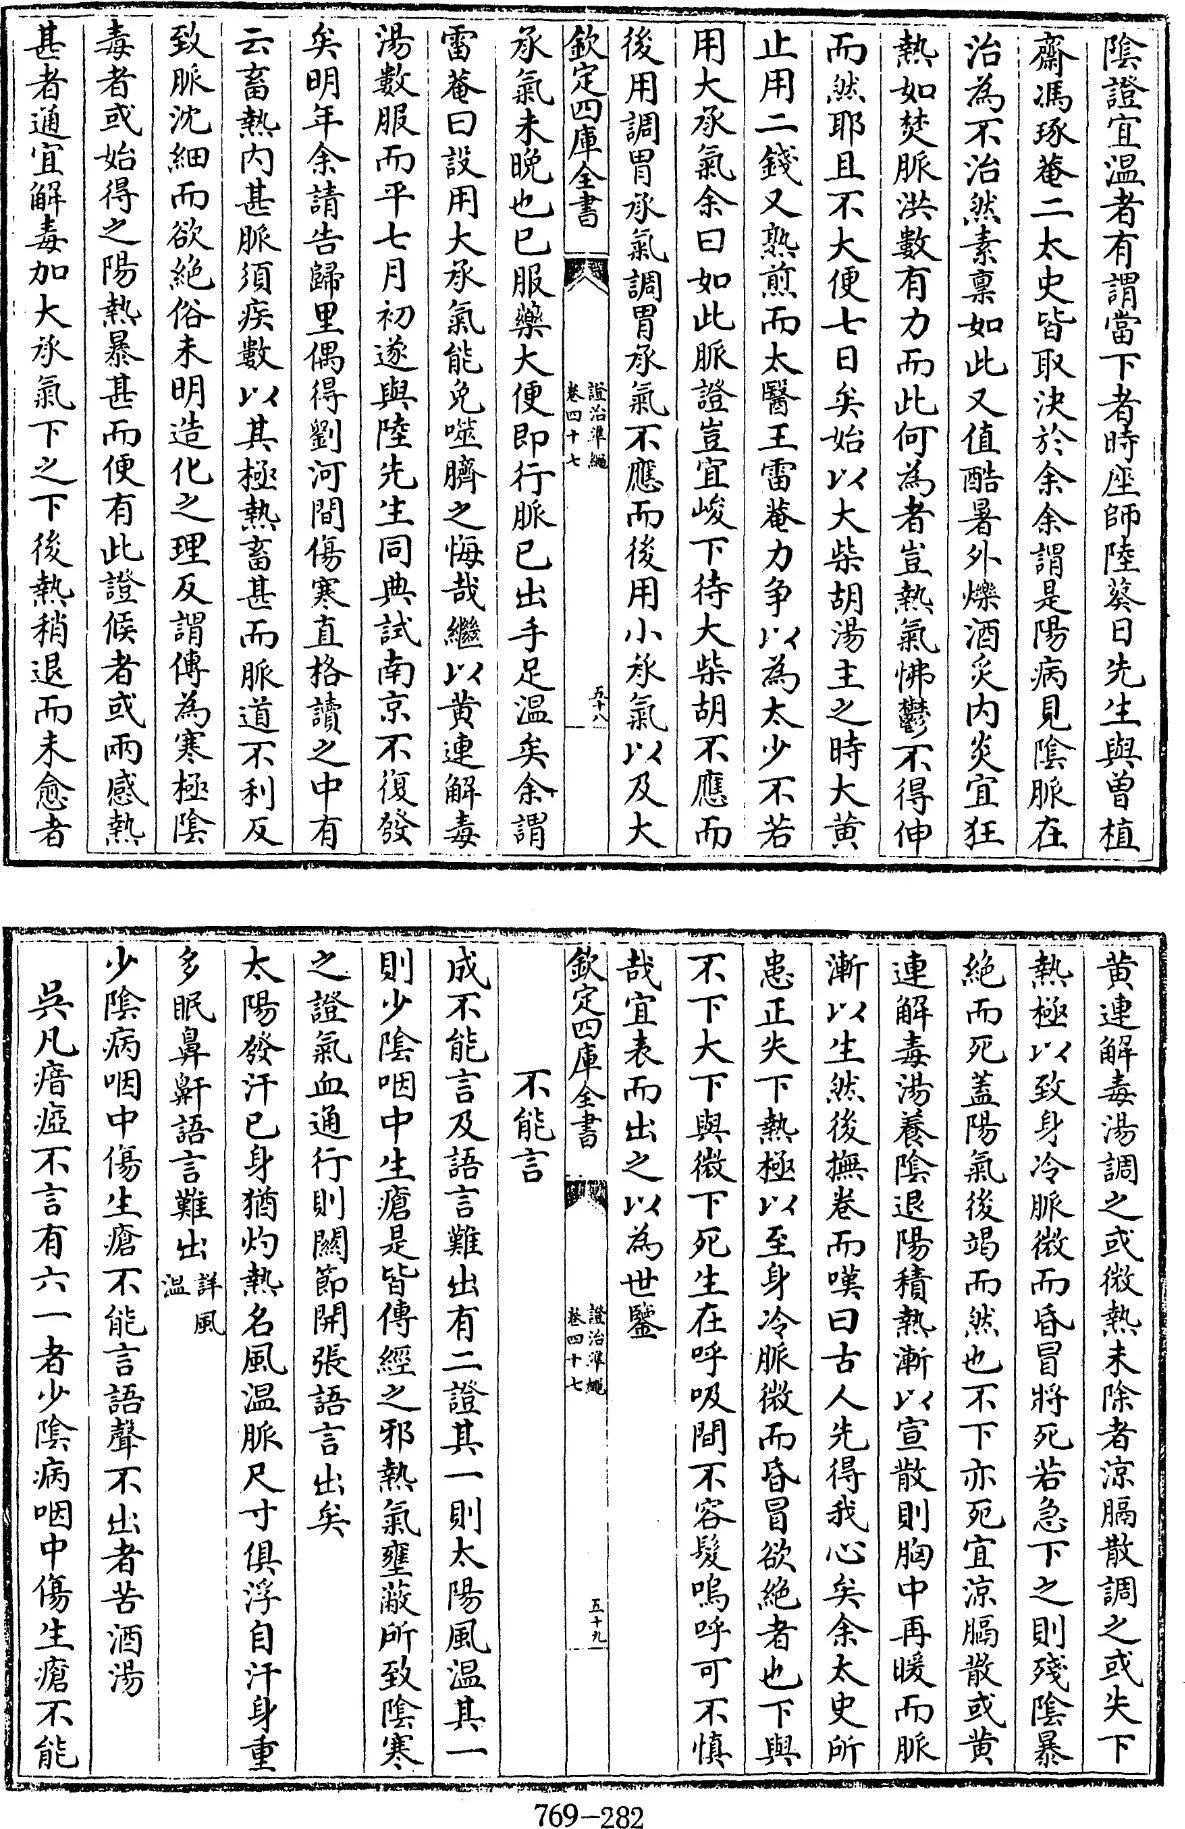 陰證宜温者有謂當下者時座師陸葵日先生與曽植
齋馮琢菴二太史皆取決於余余謂是陽病見陰脈在
治為不治然素禀如此又值酷暑外爍酒炙内炎宜狂
熱如焚脈洪數有力而此何為者豈熱氣怫鬱不得伸
而然耶且不大便七日矣始以大柴胡湯主之時大黄
止用二錢又熟煎而太醫王雷菴力争以為太少不若
用大承氣余曰如此脈證豈宜峻下待大柴胡不應而
後用調胃承氣調胃承氣不應而後用小承氣以及大
欽定四庫全書 證治準繩 卷四十七 五十八
承氣未晚也已服藥大便即行脈已出手足温矣余謂
雷菴曰設用大承氣能免噬臍之悔哉繼以黄連解毒
湯數服而平七月初遂與陸先生同典試南京不復發
矣明年余請告歸里偶得劉河間傷寒直格讀之中有
云畜熱内甚脈須疾數以其極熱畜甚而脈道不利反
致脈沈細而欲絶俗未明造化之理反謂傳為寒極陰
毒者或始得之陽熱暴甚而便有此證候者或兩感熱
甚者通宜解毒加大承氣下之下後熱稍退而未愈者
黄連解毒湯調之或微熱未除者涼膈散調之或失下
熱極以致身冷脈微而昏冒將死若急下之則殘陰暴
絶而死蓋陽氣後竭而然也不下亦死宜涼膈散或黄
連解毒湯養陰退陽積熱漸以宣散則胸中再暖而脈
漸以生然後撫卷而嘆曰古人先得我心矣余太史所
患正失下熱極以至身冷脈微而昏冒欲絶者也下與
不下大下與微下死生在呼吸間不容髮嗚呼可不慎
哉宜表而出之以為世鑒
欽定四庫全書 證治準繩 卷四十七 五十九
不能言
成不能言及語言難出有二證其一則太陽風温其一
則少陰咽中生瘡是皆傳經之邪熱氣壅蔽所致陰寒
之證氣血通行則關節開張語言出矣
太陽發汗已身猶灼熱名風温脈尺寸俱浮自汗身重
多眠鼻鼾語言難出詳風温
少陰病咽中傷生瘡不能言語聲不出者苦酒湯
吳凡瘖瘂不言有六一者少陰病咽中傷生瘡不能
769-282